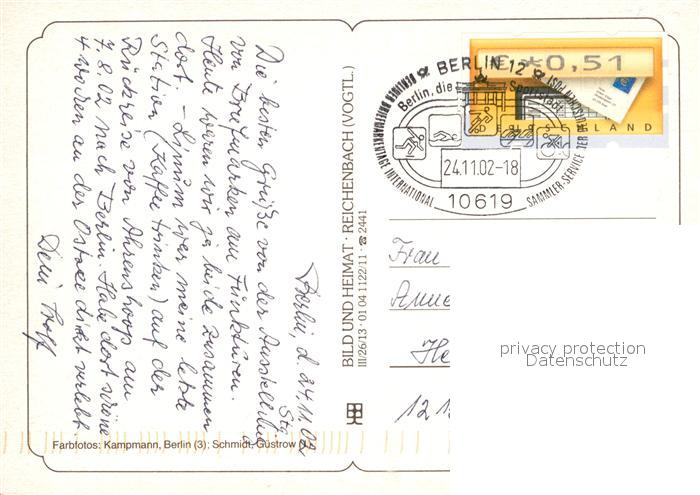 Berlin, d. 24.11.02
Die besten Grüße von der Ausstellung
von Briefmarken am Funkturm.
Heute waren wir ja beide zusammen
dort. – Linum war meine letzte
Station (Kaffee trinken) auf der
Rückreise von Ahrenshoop am
7.8.02 nach Berlin. Habe dort schöne
4 Wochen an der Ostsee direkt verlebt
Dein
Farbfotos: Kampmann, Berlin (3); Schmidt, Güstrow (1)
BILD UND HEIMAT · REICHENBACH (VOGTL.)
III/26/13 · 01 04 11 22/11 · ☎ 2441
€*0,51
DEUTSCHLAND
BERLIN 12
Berlin, die Sportstadt
24.11.02-18
10619
BERLINER BRIEFMARKENTAGE INTERNATIONAL
SAMMLER-SERVICE DER DEUTSCHEN POST
Frau
Anne
He
121
privacy protection
Datenschutz